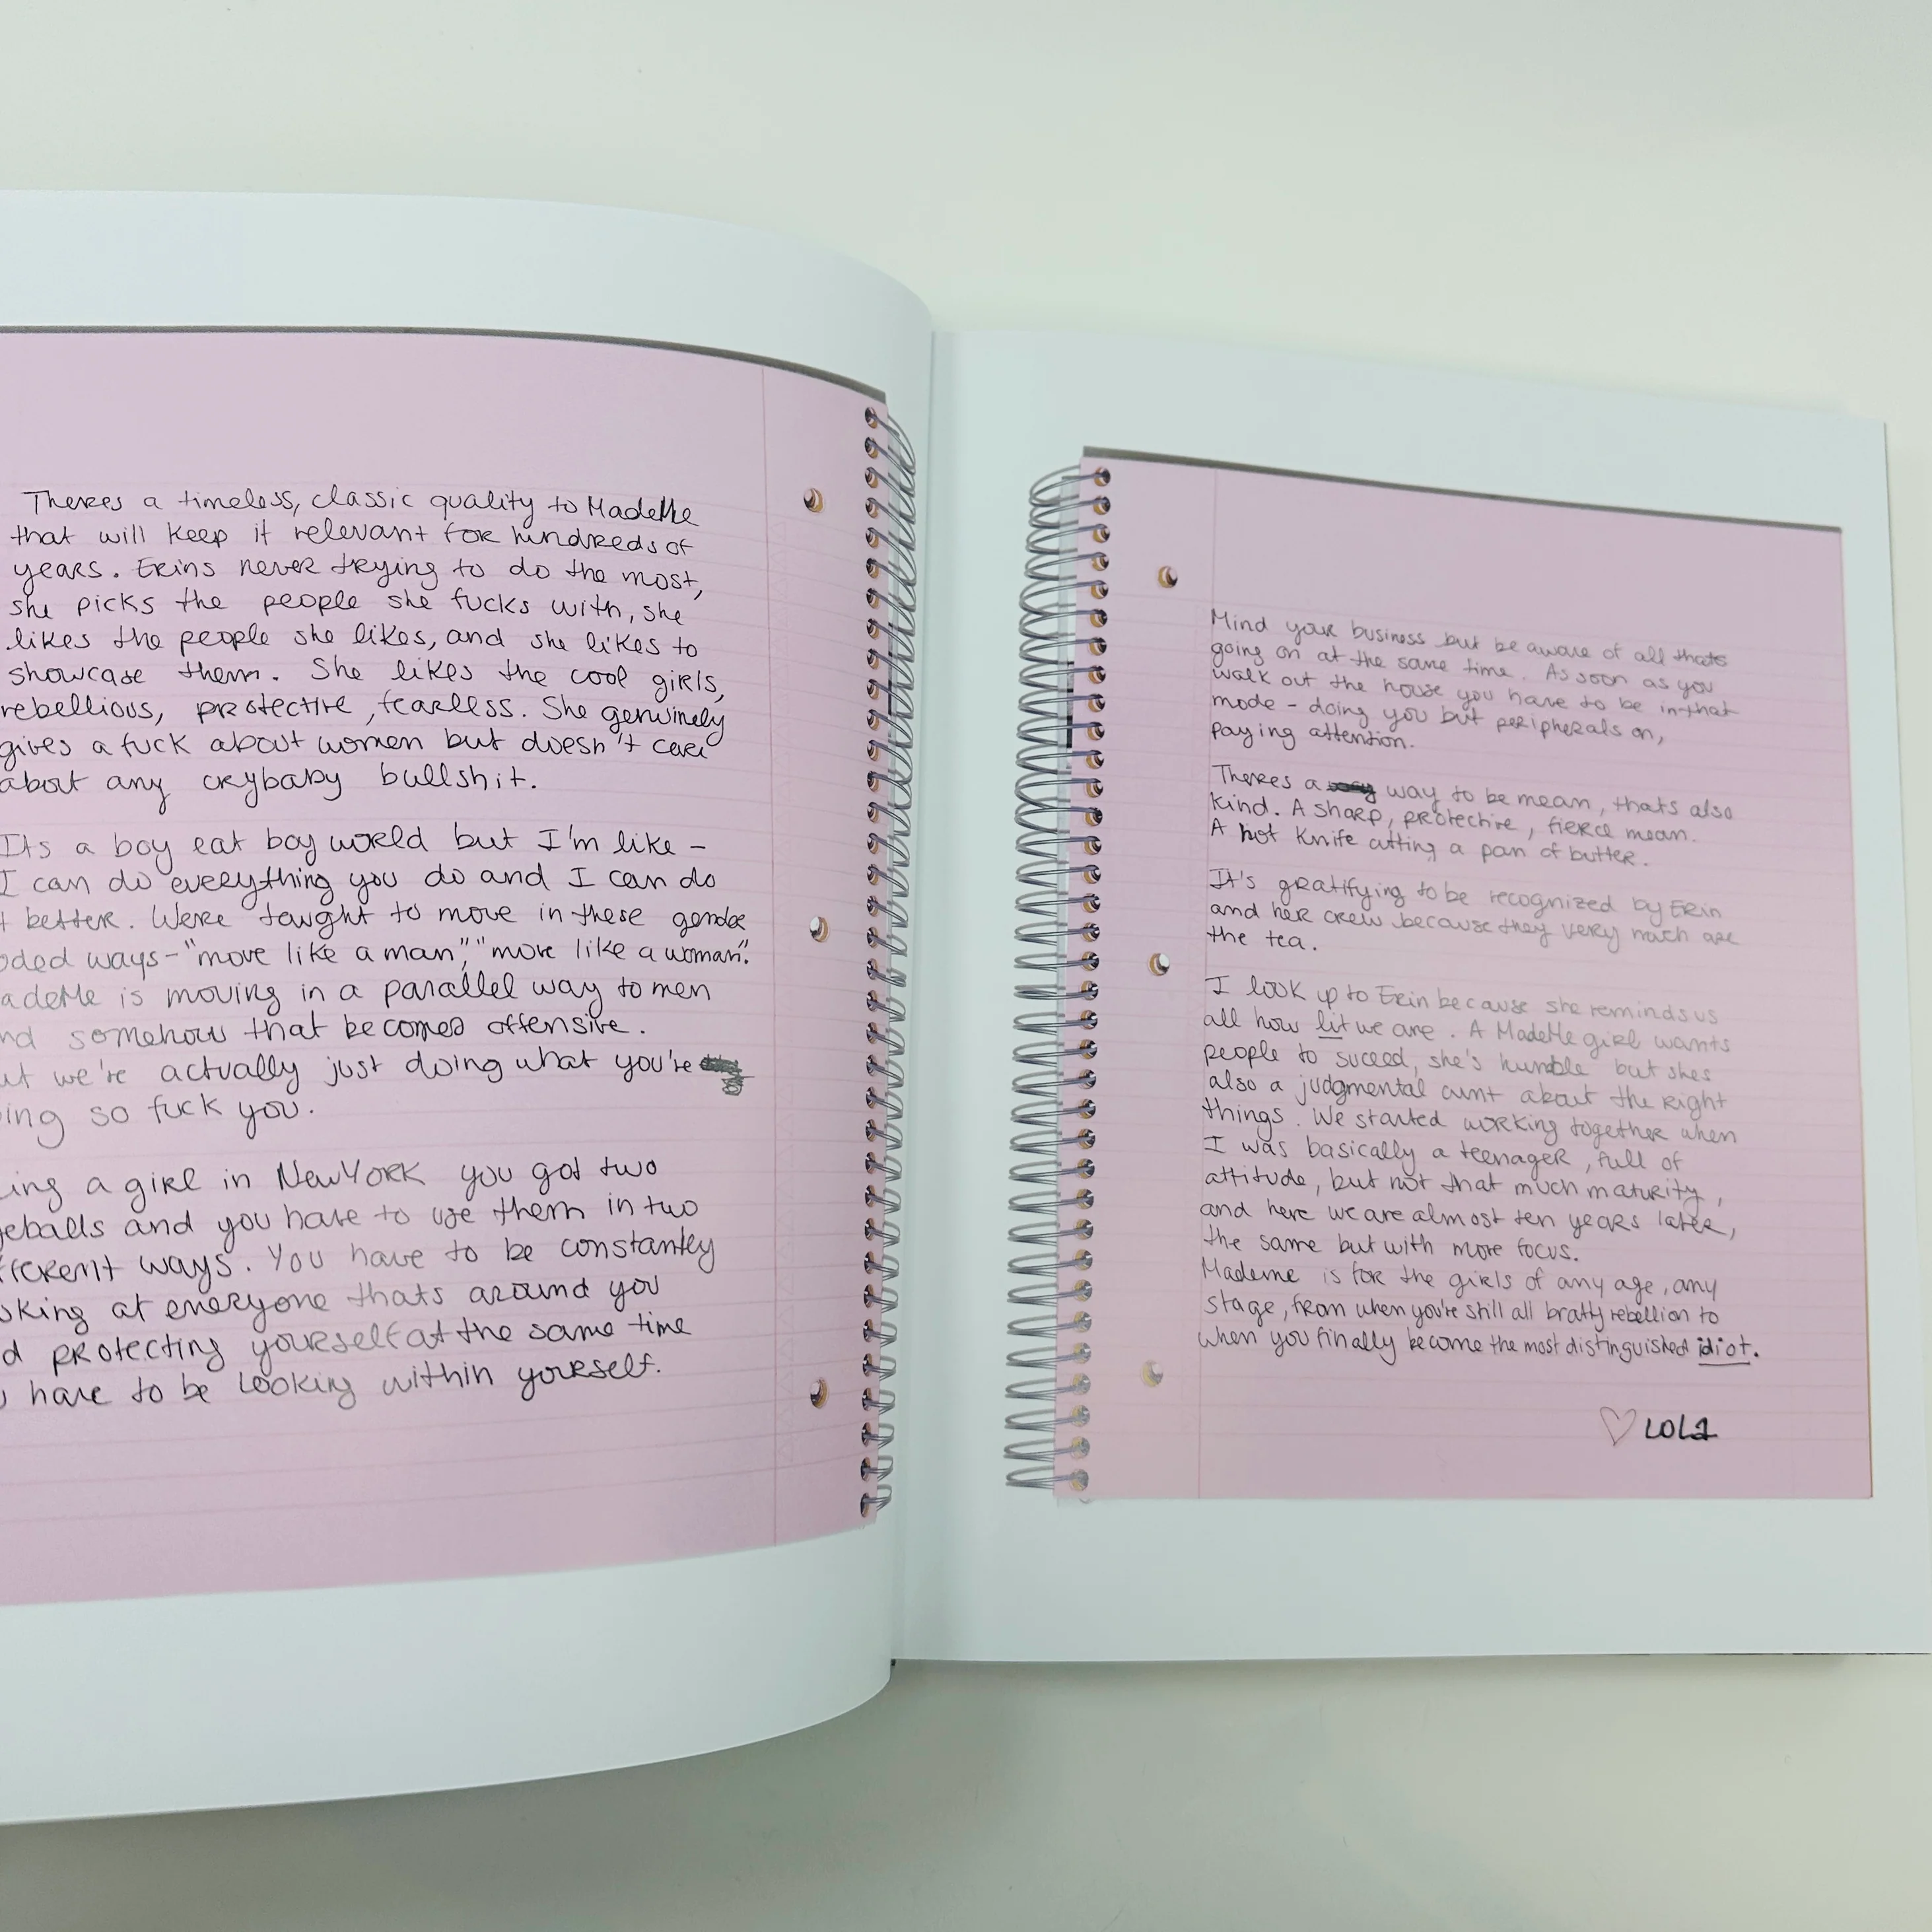 Theres a timeless, classic quality to MadeMe
that will keep it relevant for hundreds of
years. Erins never trying to do the most,
she picks the people she fucks with, she
likes the people she likes, and she likes to
showcase them. She likes the cool girls,
rebellious, protective, fearless. She genuinely
gives a fuck about women but doesn't care
about any crybaby bullshit.
Its a boy eat boy world but I'm like -
I can do everything you do and I can do
t better. Were taught to move in these gender
oded ways - "move like a man", "move like a woman".
adeMe is moving in a parallel way to men
nd somehow that becomes offensive.
ut we're actually just doing what you're
ing so fuck you.
ing a girl in New York you got two
eballs and you have to use them in two
fferent ways. You have to be constantly
oking at everyone thats around you
d protecting yourself at the same time
u have to be looking within yourself.
Mind your business but be aware of all thats
going on at the same time. As soon as you
walk out the house you have to be in that
mode - doing you but peripherals on,
paying attention.
Theres a way to be mean, thats also
kind. A sharp, protective, fierce mean.
A hot knife cutting a pan of butter.
It's gratifying to be recognized by Erin
and her crew because they very much are
the tea.
I look up to Erin because she reminds us
all how lit we are. A MadeMe girl wants
people to suceed, she's humble but shes
also a judgmental cunt about the right
things. We started working together when
I was basically a teenager, full of
attitude, but not that much maturity,
and here we are almost ten years later,
the same but with more focus.
Mademe is for the girls of any age, any
stage, from when you're still all bratty rebellion to
when you finally become the most distinguished idiot.
♡ LOLA